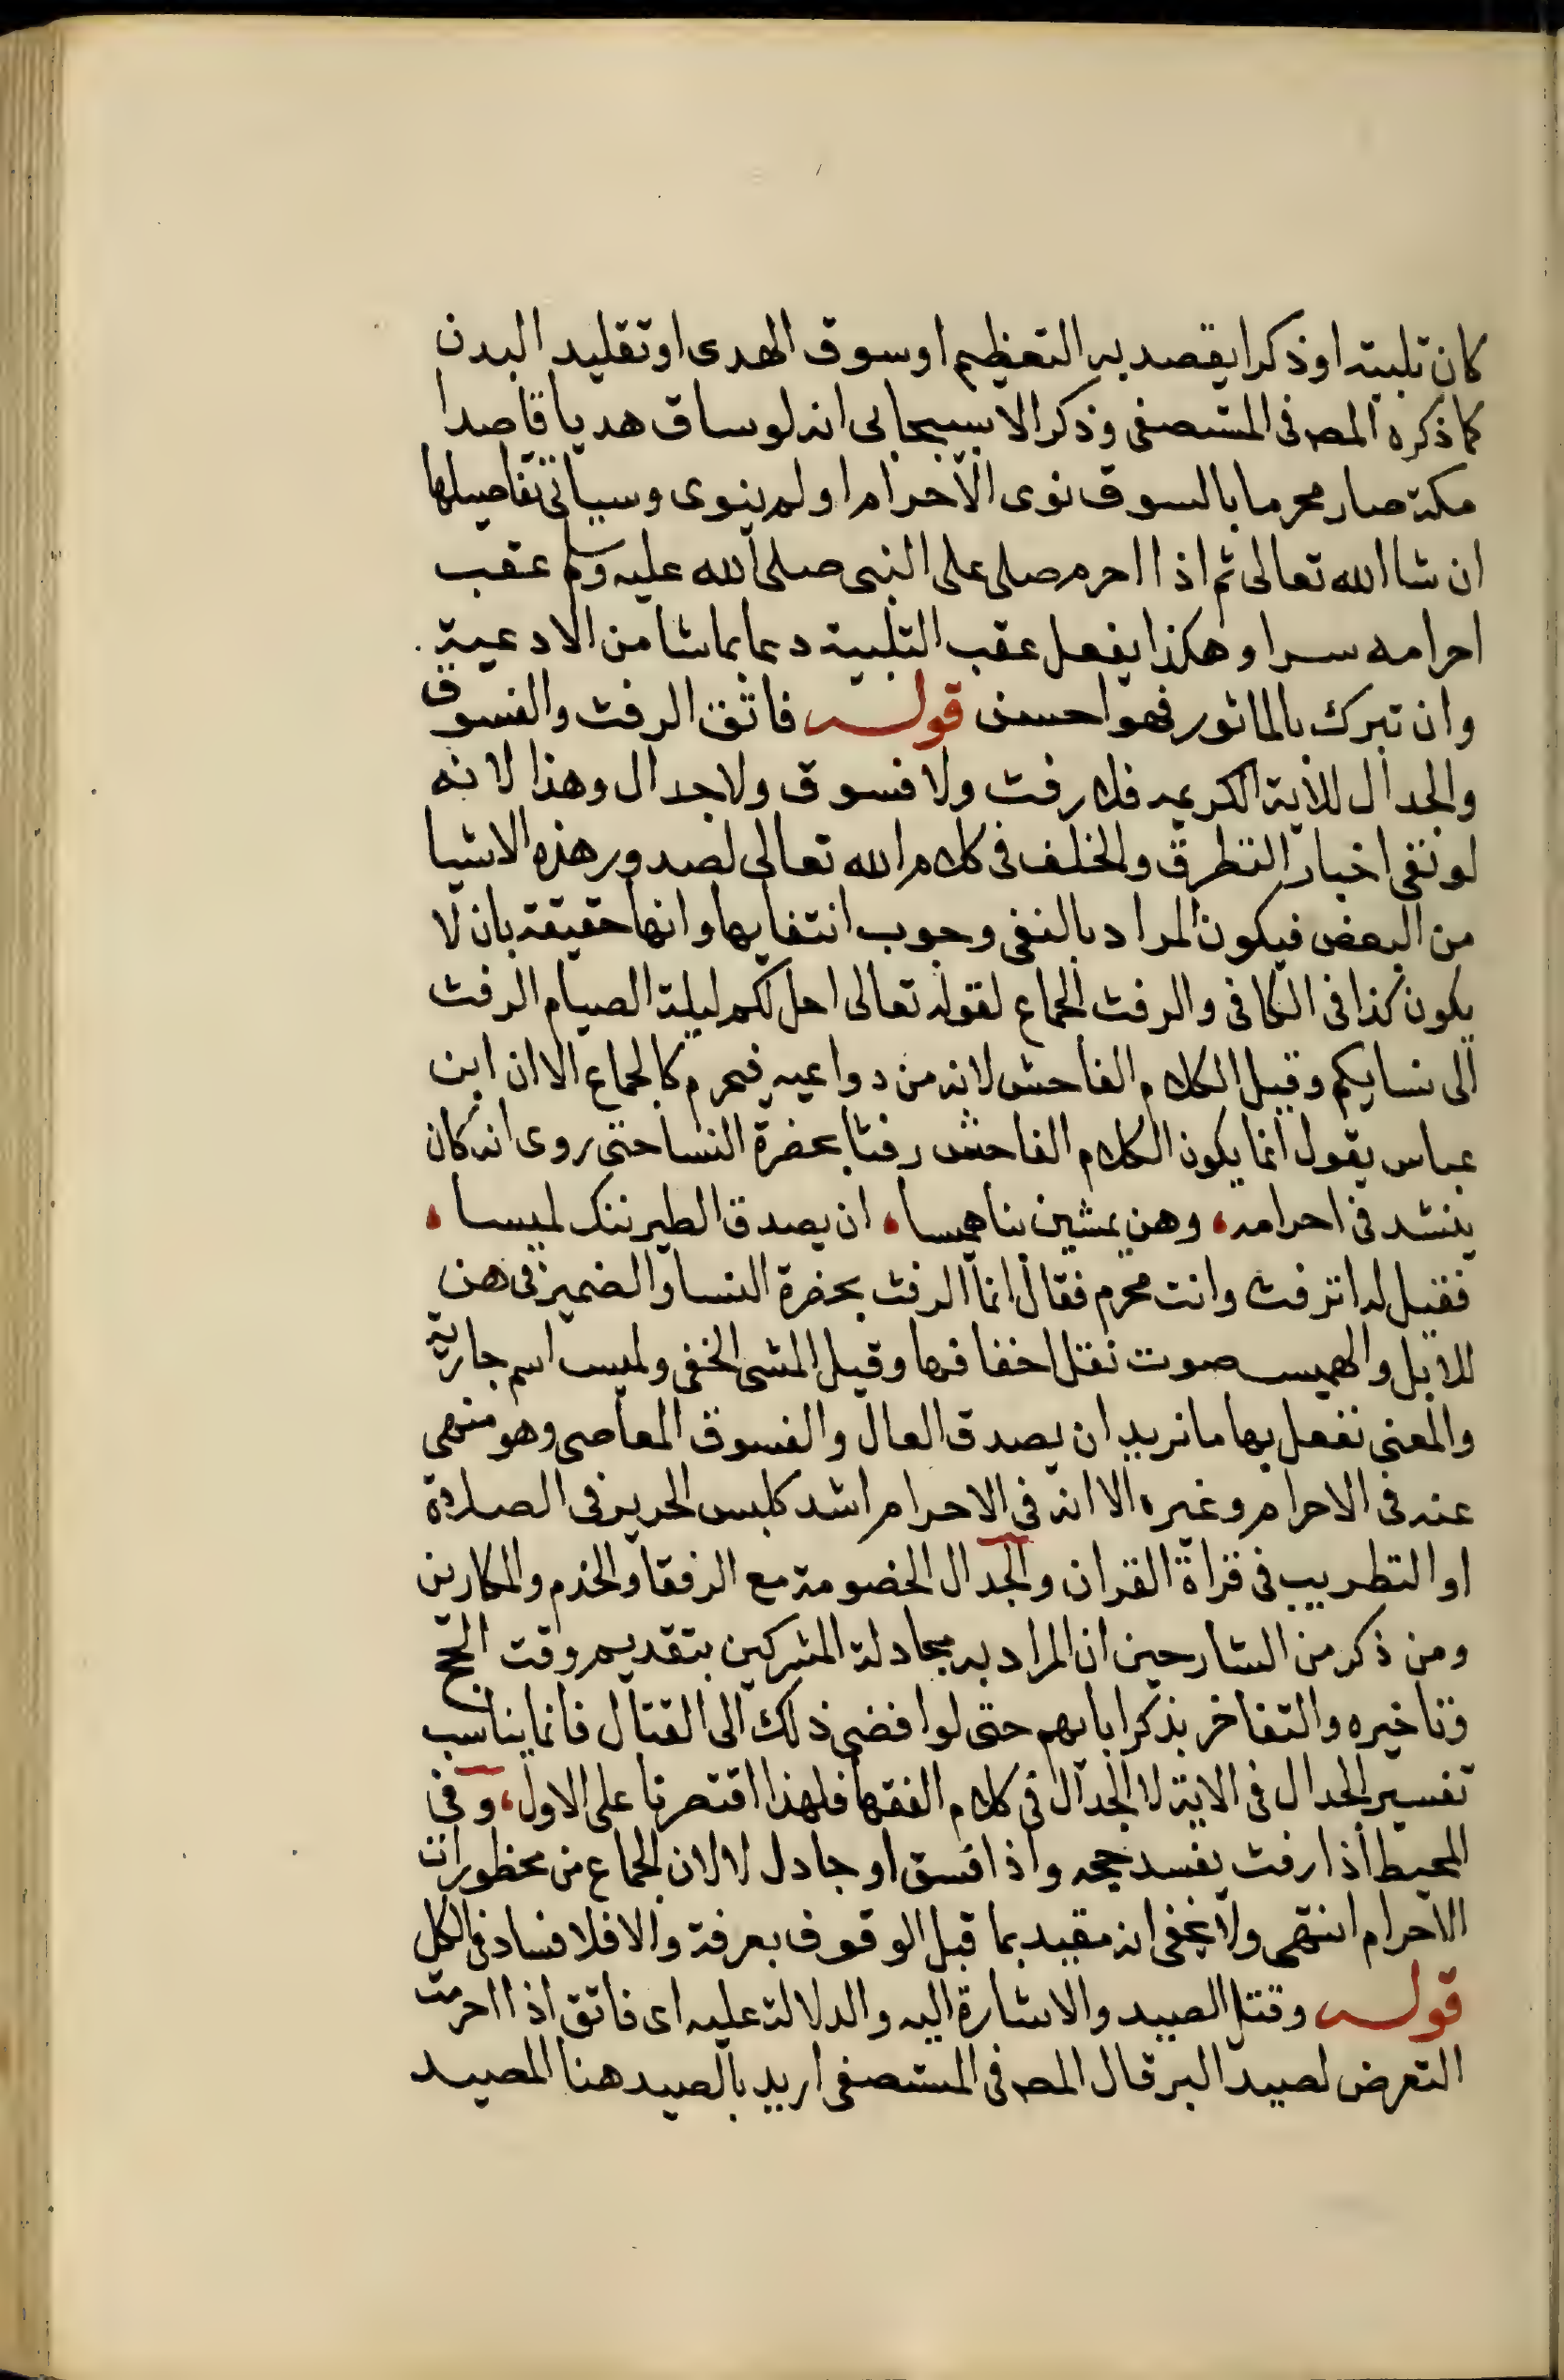 كان تلبيته اوذكرا يقصد به التعظيم او سوق الهدى او تقليد البدن
كما ذكره المصـ فى المستصفى وذكر الاسبيجابى انه لو ساق هديا قاصدا
مكة صار محرما بالسوق نوى الاحرام او لم ينوى وسياتى تفاصيلها
ان شا الله تعالى ثم اذا احرم صلى على النبى صلى الله عليه وسلم عقب
احرامه سرا وهكذا يفعل عقب التلبية دعا بما شا من الادعية
وان تبرك بالماثور فهو احسن قوله فاتق الرفث والفسوق
والجدال للاية الكريمه فلا رفث ولا فسوق ولا جدال وهذا لانه
لو نفى اخبار التطرق والخلف فى كلام الله تعالى لصدور هذه الاشيا
من البعض فيكون المراد بالنفى وجوب انتفايها وانها حقيقة بان لا
يكون كذا فى الكافى والرفث الجماع لقوله تعالى احل لكم ليلة الصيام الرفث
الى نسايكم وقيل الكلام الفاحش لانه من دواعيه فيحرم كالجماع الا ان ابن
عباس يقول انما يكون الكلام الفاحش رفثا بحضرة النسا حتى روى انه كان
ينشد فى احرامه، وهن يمشين بنا هميسا، ان يصدق الطير ننك لميسا،
فقيل له اترفث وانت محرم فقال انما الرفث بحضرة النسا والضمير فى هن
للابل والهميس صوت نقل اخفافها وقيل المشى الخفى ولميس اسم جارية
والمعنى نفعل بها ما نريد ان يصدق الفال والفسوق المعاصى وهو منهى
عنه فى الاحرام وغيره الا انه فى الاحرام اشد كلبس الحرير فى الصلاة
او التطريب فى قراة القران والجدال الخضومة مع الرفقا والخدم والمكارين
ومن ذكر من الشارحين ان المراد به مجادلة المشركين بتقديم وقت الحج
وتاخيره والتفاخر بذكر ابايهم حتى لو افضى ذلك الى القتال فانما يناسب
تفسير الجدال فى الاية لا الجدال فى كلام الفقها فلهذا اقتصرنا على الاول، وفى
المحيط اذا رفث يفسد حجه واذا فسق او جادل لا لان الجماع من محظورات
الاحرام انتهى ولا يخفى انه مقيد بما قبل الوقوف بعرفة والا فلا فساد فى الكل
قوله وقتل الصيد والاشارة اليه والدلالة عليه اى فاتق اذا احرمت
التعرض لصيد البر قال المصـ فى المستصفى اريد بالصيد هنا المصيد